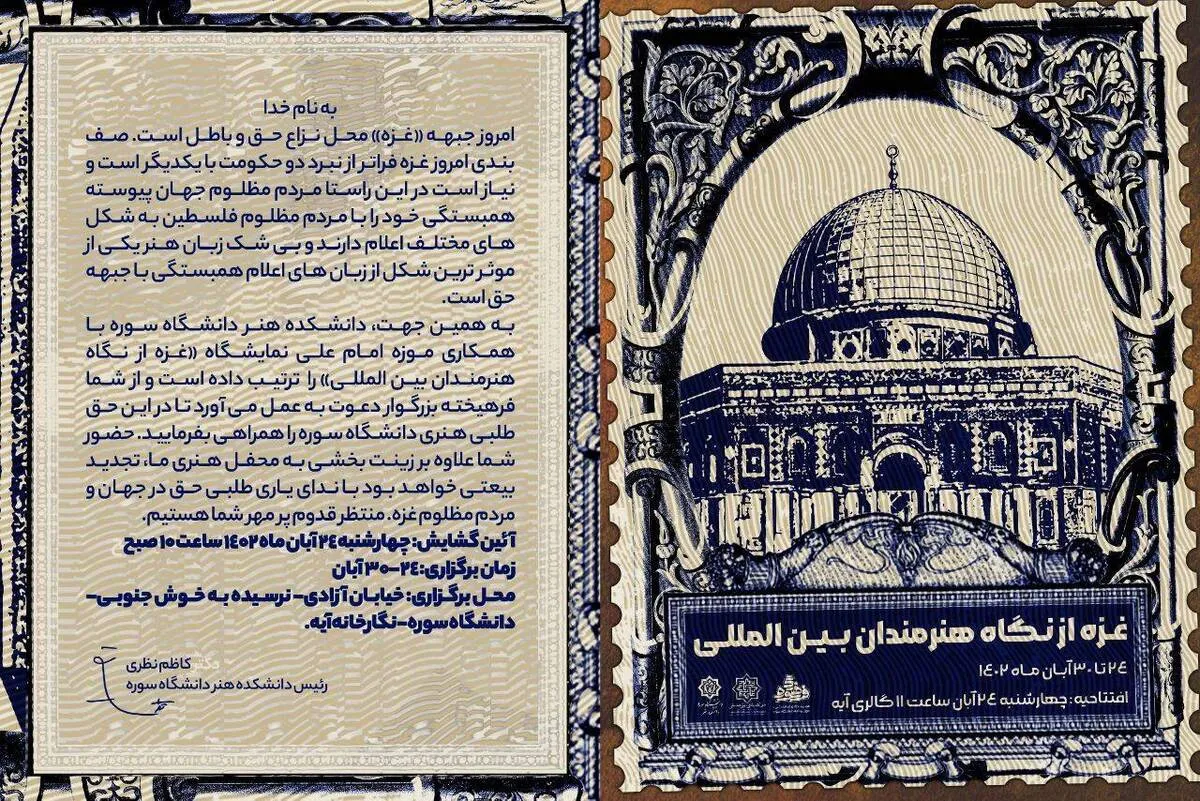 به نام خدا
امروز جبهه «غزه» محل نزاع حق و باطل است. صف
بندی امروز غزه فراتر از نبرد دو حکومت با یکدیگر است و
نیاز است در این راستا مردم مظلوم جهان پیوسته
همبستگی خود را با مردم مظلوم فلسطین به شکل
های مختلف اعلام دارند و بی شک زبان هنر یکی از
موثر ترین شکل از زبان های اعلام همبستگی با جبهه
حق است.
به همین جهت، دانشکده هنر دانشگاه سوره با
همکاری موزه امام علی نمایشگاه «غزه از نگاه
هنرمندان بین المللی» را ترتیب داده است و از شما
فرهیخته بزرگوار دعوت به عمل می آورد تا در این حق
طلبی هنری دانشگاه سوره را همراهی بفرمایید. حضور
شما علاوه بر زینت بخشی به محفل هنری ما، تجدید
بیعتی خواهد بود با ندای یاری طلبی حق در جهان و
مردم مظلوم غزه. منتظر قدوم پر مهر شما هستیم.
آئین گشایش: چهارشنبه ۲۴ آبان ماه ۱۴۰۲ ساعت ۱۰ صبح
زمان برگزاری: ۲۴-۳۰ آبان
محل برگزاری: خیابان آزادی- نرسیده به خوش جنوبی-
دانشگاه سوره-نگارخانه آیه.
دکتر کاظم نظری
رئیس دانشکده هنر دانشگاه سوره
غزه از نگاه هنرمندان بین المللی
۲۴ تا ۳۰ آبان ماه ۱۴۰۲
افتتاحیه: چهارشنبه ۲۴ آبان ساعت ۱۱ گالری آیه